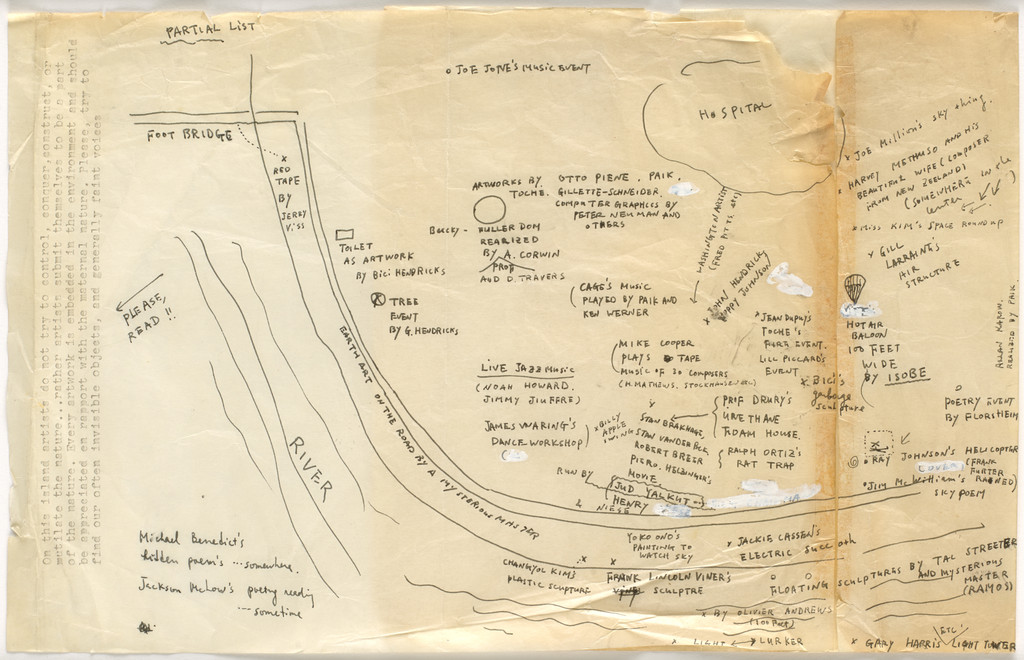 PARTIAL LIST
On this island artists do not try to control, conquer, construct, or
mutilate the nature...rather artists submit themselves to be a part
of the nature. Every artwork is embedded in the environment and should
be appreciated on rapport with the maternal nature. Please, try to
find our often invisible objects, and generally faint voices
PLEASE,
READ !!
FOOT BRIDGE
x
RED
TAPE
BY
JERRY
VISS
o JOE JONE'S MUSIC EVENT
HOSPITAL
TOILET
AS ARTWORK
BY BICI HENDRICKS
TREE
EVENT
BY G. HENDRICKS
ARTWORKS BY OTTO PIENE. PAIK.
TOCHE. GILLETTE-SCHNEIDER.
COMPUTER GRAPHICS BY
PETER NEWMAN AND
OTHERS
BULLER DOM
REARIZED
BY A. CORWIN
PROF
AUD D. TRAVERS
CAGE'S MUSIC
PLAYED BY PAIK AND
KEN WERNER
WASHINGTON ARTIST
x JOHN HENDRICK
POPPY JOHNSON
x JOE Million's sky thing.
x HARVEY METHUSO AND HIS
BEAUTIFUL WIFE (COMPOSER
FROM NEW ZEELAND)
(SOMEWHERE in the
center
x MISS KIM'S SPACE ROUNDUP
x GILL
LARRAING'S
AIR
STRUCTURE
HOT AIR
BALOON
100 FEET
WIDE
BY ISOBE
ALLAN KAPOW.
REALIZED BY PAIK.
x JEAN DUPUY'S
TOCHE'S
EVENT.
LILL PICCARD'S
EVENT
x BICI'S
garbage
sculpture
MIKE COOPER
PLAYS TAPE
MUSIC OF 30 COMPOSERS
(M. MATHEWS, STOCKHAUSEN, ETC)
LIVE JAZZ MUSIC
(NOAH HOWARD.
JIMMY JIUFFRE)
JAMES WARING'S
DANCE WORKSHOP
x BILLY
APPLE
SWING
x
STAN BRAKHAGE,
STAN VANDERBEEK,
ROBERT BREER
PIERO. HELICZER'S
MOVIE
RUN BY
JUD YALKUT
HENRY
NIESE
PROF DRURY'S
URETHANE
FOAM HOUSE.
RALPH ORTIZ'S
RAT TRAP
o
POETRY EVENT
BY FLORSHEIM
RAY JOHNSON'S HELICOPTER
x JIM McWILLIAM'S
SKY POEM
EARTH ART ON THE ROAD BY A MYSTERIOUS MASTER
RIVER
Michael Benedict's
hidden poem's ... somewhere.
Jackson McLow's poetry reading
... sometime
YOKO ONO'S
PAINTING TO
WATCH SKY
x JACKIE CASSEN'S
ELECTRIC
CHANGYOL KIM'S
PLASTIC SCLUPTURE
x
FRANK LINCOLN VINER'S
SCULPTRE
FLOATING SCULPTURES BY TAL STREETER
AND MYSTERIOUS
MASTER
(RAMOS)
x BY OLIVIER ANDREWS
(100 FEET)
x LIGHT LURKER
ETC
x GARY HARRIS LIGHT TOWER